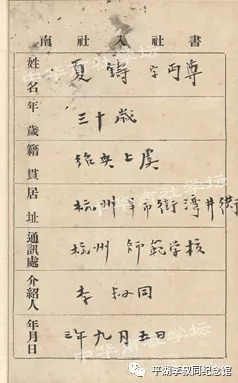 南社入社書
姓名 夏鑄 字丏尊
年歲 三十歲
籍貫 紹興上虞
居址 杭州羊市街灣井衖
通訊處 杭州 師範学校
介紹人 李叔同
年月日 三年九月五日
平湖李叔同纪念馆